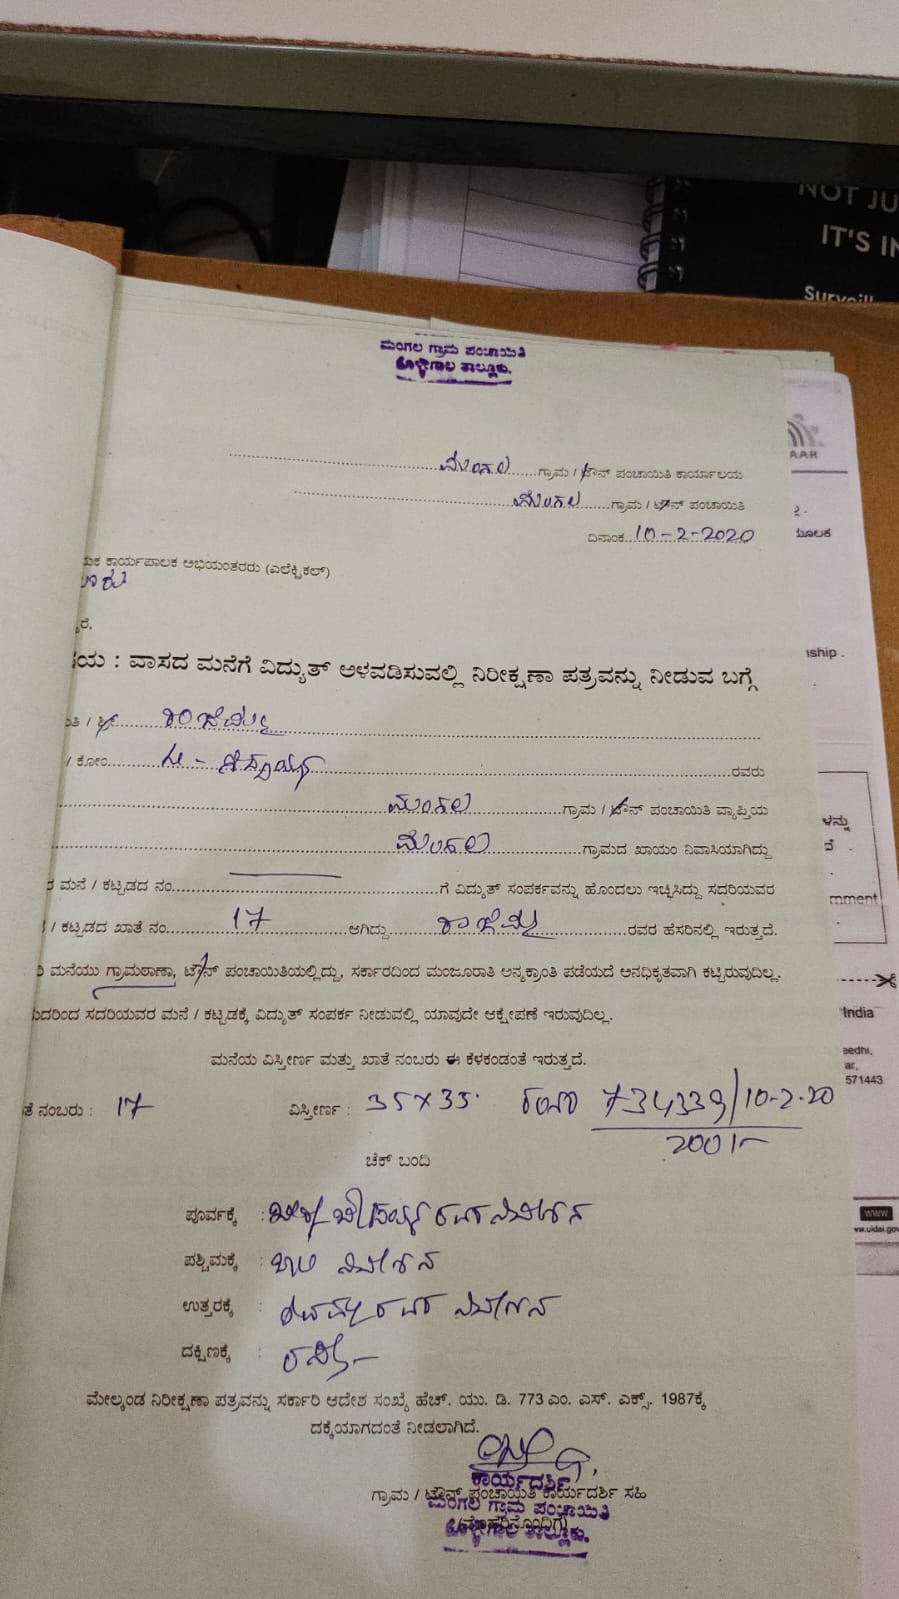 NOT JU
IT'S IN
Surveill
ಮಂಗಲ ಗ್ರಾಮ ಪಂಚಾಯಿತಿ
ಕೊಳ್ಳೇಗಾಲ ತಾಲ್ಲೂಕು.
ಮಂಗಲ ಗ್ರಾಮ / ಟೌನ್ ಪಂಚಾಯಿತಿ ಕಾರ್ಯಾಲಯ
ಮಂಗಲ ಗ್ರಾಮ / ಟೌನ್ ಪಂಚಾಯಿತಿ
ದಿನಾಂಕ 10-2-2020
ಯಕ ಕಾರ್ಯಪಾಲಕ ಅಭಿಯಂತರರು (ಎಲೆಕ್ಟ್ರಿಕಲ್)
ರೆ,
ಷಯ : ವಾಸದ ಮನೆಗೆ ವಿದ್ಯುತ್ ಅಳವಡಿಸುವಲ್ಲಿ ನಿರೀಕ್ಷಣಾ ಪತ್ರವನ್ನು ನೀಡುವ ಬಗ್ಗೆ
ತಿ / ಶ್ರೀ
/ ಕೋಂ ರವರು
ಮಂಗಲ ಗ್ರಾಮ / ಟೌನ್ ಪಂಚಾಯಿತಿ ವ್ಯಾಪ್ತಿಯ
ಮಂಗಲ ಗ್ರಾಮದ ಖಾಯಂ ನಿವಾಸಿಯಾಗಿದ್ದು
ರ ಮನೆ / ಕಟ್ಟಡದ ನಂ. ಗೆ ವಿದ್ಯುತ್ ಸಂಪರ್ಕವನ್ನು ಹೊಂದಲು ಇಚ್ಛಿಸಿದ್ದು ಸದರಿಯವರ
/ ಕಟ್ಟಡದ ಖಾತೆ ನಂ. 17 ಆಗಿದ್ದು ರವರ ಹೆಸರಿನಲ್ಲಿ ಇರುತ್ತದೆ.
ರಿ ಮನೆಯು ಗ್ರಾಮಠಾಣಾ, ಟೌನ್ ಪಂಚಾಯಿತಿಯಲ್ಲಿದ್ದು, ಸರ್ಕಾರದಿಂದ ಮಂಜೂರಾತಿ ಅನ್ಯಕ್ರಾಂತಿ ಪಡೆಯದೆ ಅನಧಿಕೃತವಾಗಿ ಕಟ್ಟಿರುವುದಿಲ್ಲ.
ುದರಿಂದ ಸದರಿಯವರ ಮನೆ / ಕಟ್ಟಡಕ್ಕೆ ವಿದ್ಯುತ್ ಸಂಪರ್ಕ ನೀಡುವಲ್ಲಿ ಯಾವುದೇ ಆಕ್ಷೇಪಣೆ ಇರುವುದಿಲ್ಲ.
ಮನೆಯ ವಿಸ್ತೀರ್ಣ ಮತ್ತು ಖಾತೆ ನಂಬರು ಈ ಕೆಳಕಂಡಂತೆ ಇರುತ್ತದೆ.
ತೆ ನಂಬರು : 17 ವಿಸ್ತೀರ್ಣ : 35x35 734339/10-2-20
200/-
ಚೆಕ್ ಬಂದಿ
ಪೂರ್ವಕ್ಕೆ : ರವರ ನಿವೇಶನ
ಪಶ್ಚಿಮಕ್ಕೆ : ನಿವೇಶನ
ಉತ್ತರಕ್ಕೆ : ರವರ ನಿವೇಶನ
ದಕ್ಷಿಣಕ್ಕೆ : ರಸ್ತೆ-
ಮೇಲ್ಕಂಡ ನಿರೀಕ್ಷಣಾ ಪತ್ರವನ್ನು ಸರ್ಕಾರಿ ಆದೇಶ ಸಂಖ್ಯೆ ಹೆಚ್. ಯು. ಡಿ. 773 ಎಂ. ಎಸ್. ಎಕ್ಸ್. 1987ಕ್ಕೆ
ದಕ್ಕೆಯಾಗದಂತೆ ನೀಡಲಾಗಿದೆ.
ಕಾರ್ಯದರ್ಶಿ
ಗ್ರಾಮ / ಟೌನ್ ಪಂಚಾಯಿತಿ ಕಾರ್ಯದರ್ಶಿ ಸಹಿ
ಮಂಗಲ ಗ್ರಾಮ ಪಂಚಾಯಿತಿ
(ಮೊಹರಿನೊಂದಿಗೆ)
ಕೊಳ್ಳೇಗಾಲ ತಾಲ್ಲೂಕು.
AAR
ಮೂಲಕ
nship .
ಳನ್ನು
rnment
India
eedhi,
ar,
571443
www
w.uidai.gov